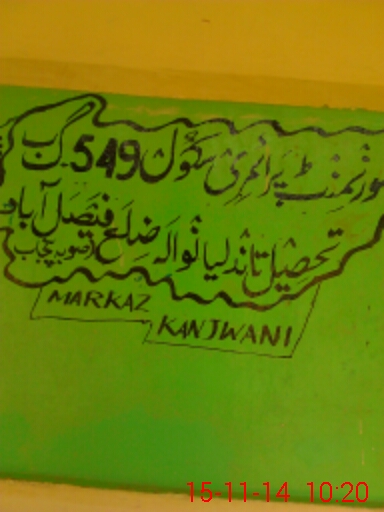 گورنمنٹ پرائمری سکول 549 گ ب
تحصیل تاندلیانوالہ ضلع فیصل آباد (صوبہ پنجاب
MARKAZ
KANJWANI
15-11-14 10:20